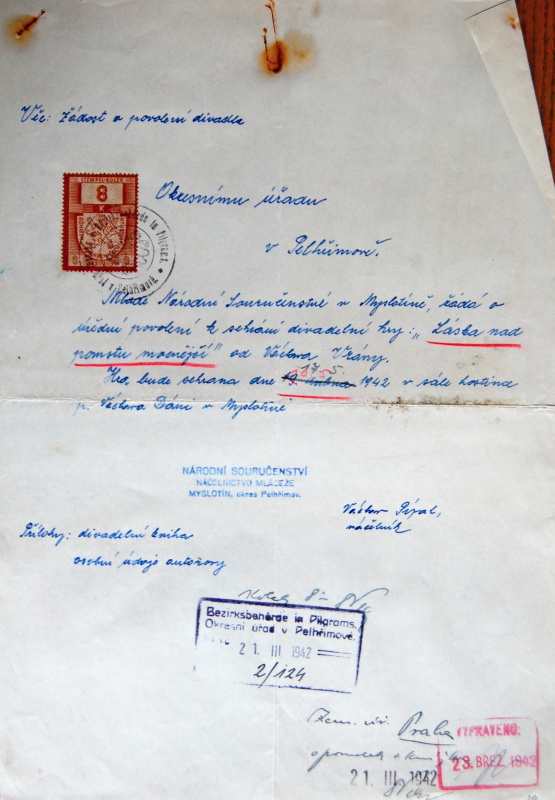 Věc: Žádost o povolení divadla
STEMPEL - KOLEK
8
K
Okresnímu úřadu
v Pelhřimově.
Mladé Národní Souručenství v Myslotíně, žádá o
úřední povolení k sehrání divadelní hry: „Láska nad
pomstu mocnější" od Václava Vrány.
17. 5.
Hra bude sehrána dne 1942 v sále hostince
p. Václava Dáni v Myslotíně
NÁRODNÍ SOURUČENSTVÍ
NÁČELNICTVO MLÁDEŽE
MYSLOTÍN, okres Pelhřimov.
Václav Pípal,
náčelník
Přílohy: divadelní kniha
osobní údaje autorovy
Kolek 8
Bezirksbehörde in Pilgrams.
Okresní úřad v Pelhřimově.
21. III 1942
2/124
Zem. úř. Praha
VYPRAVENO:
23. BŘEZ. 1942
21. III 1942